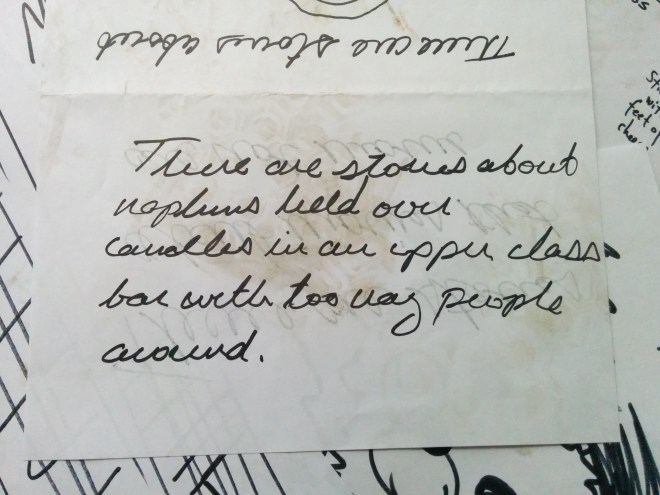 There are stories about
There are stories about
napkins held over
candles in an upper class
bar with too may people
around.
feet of